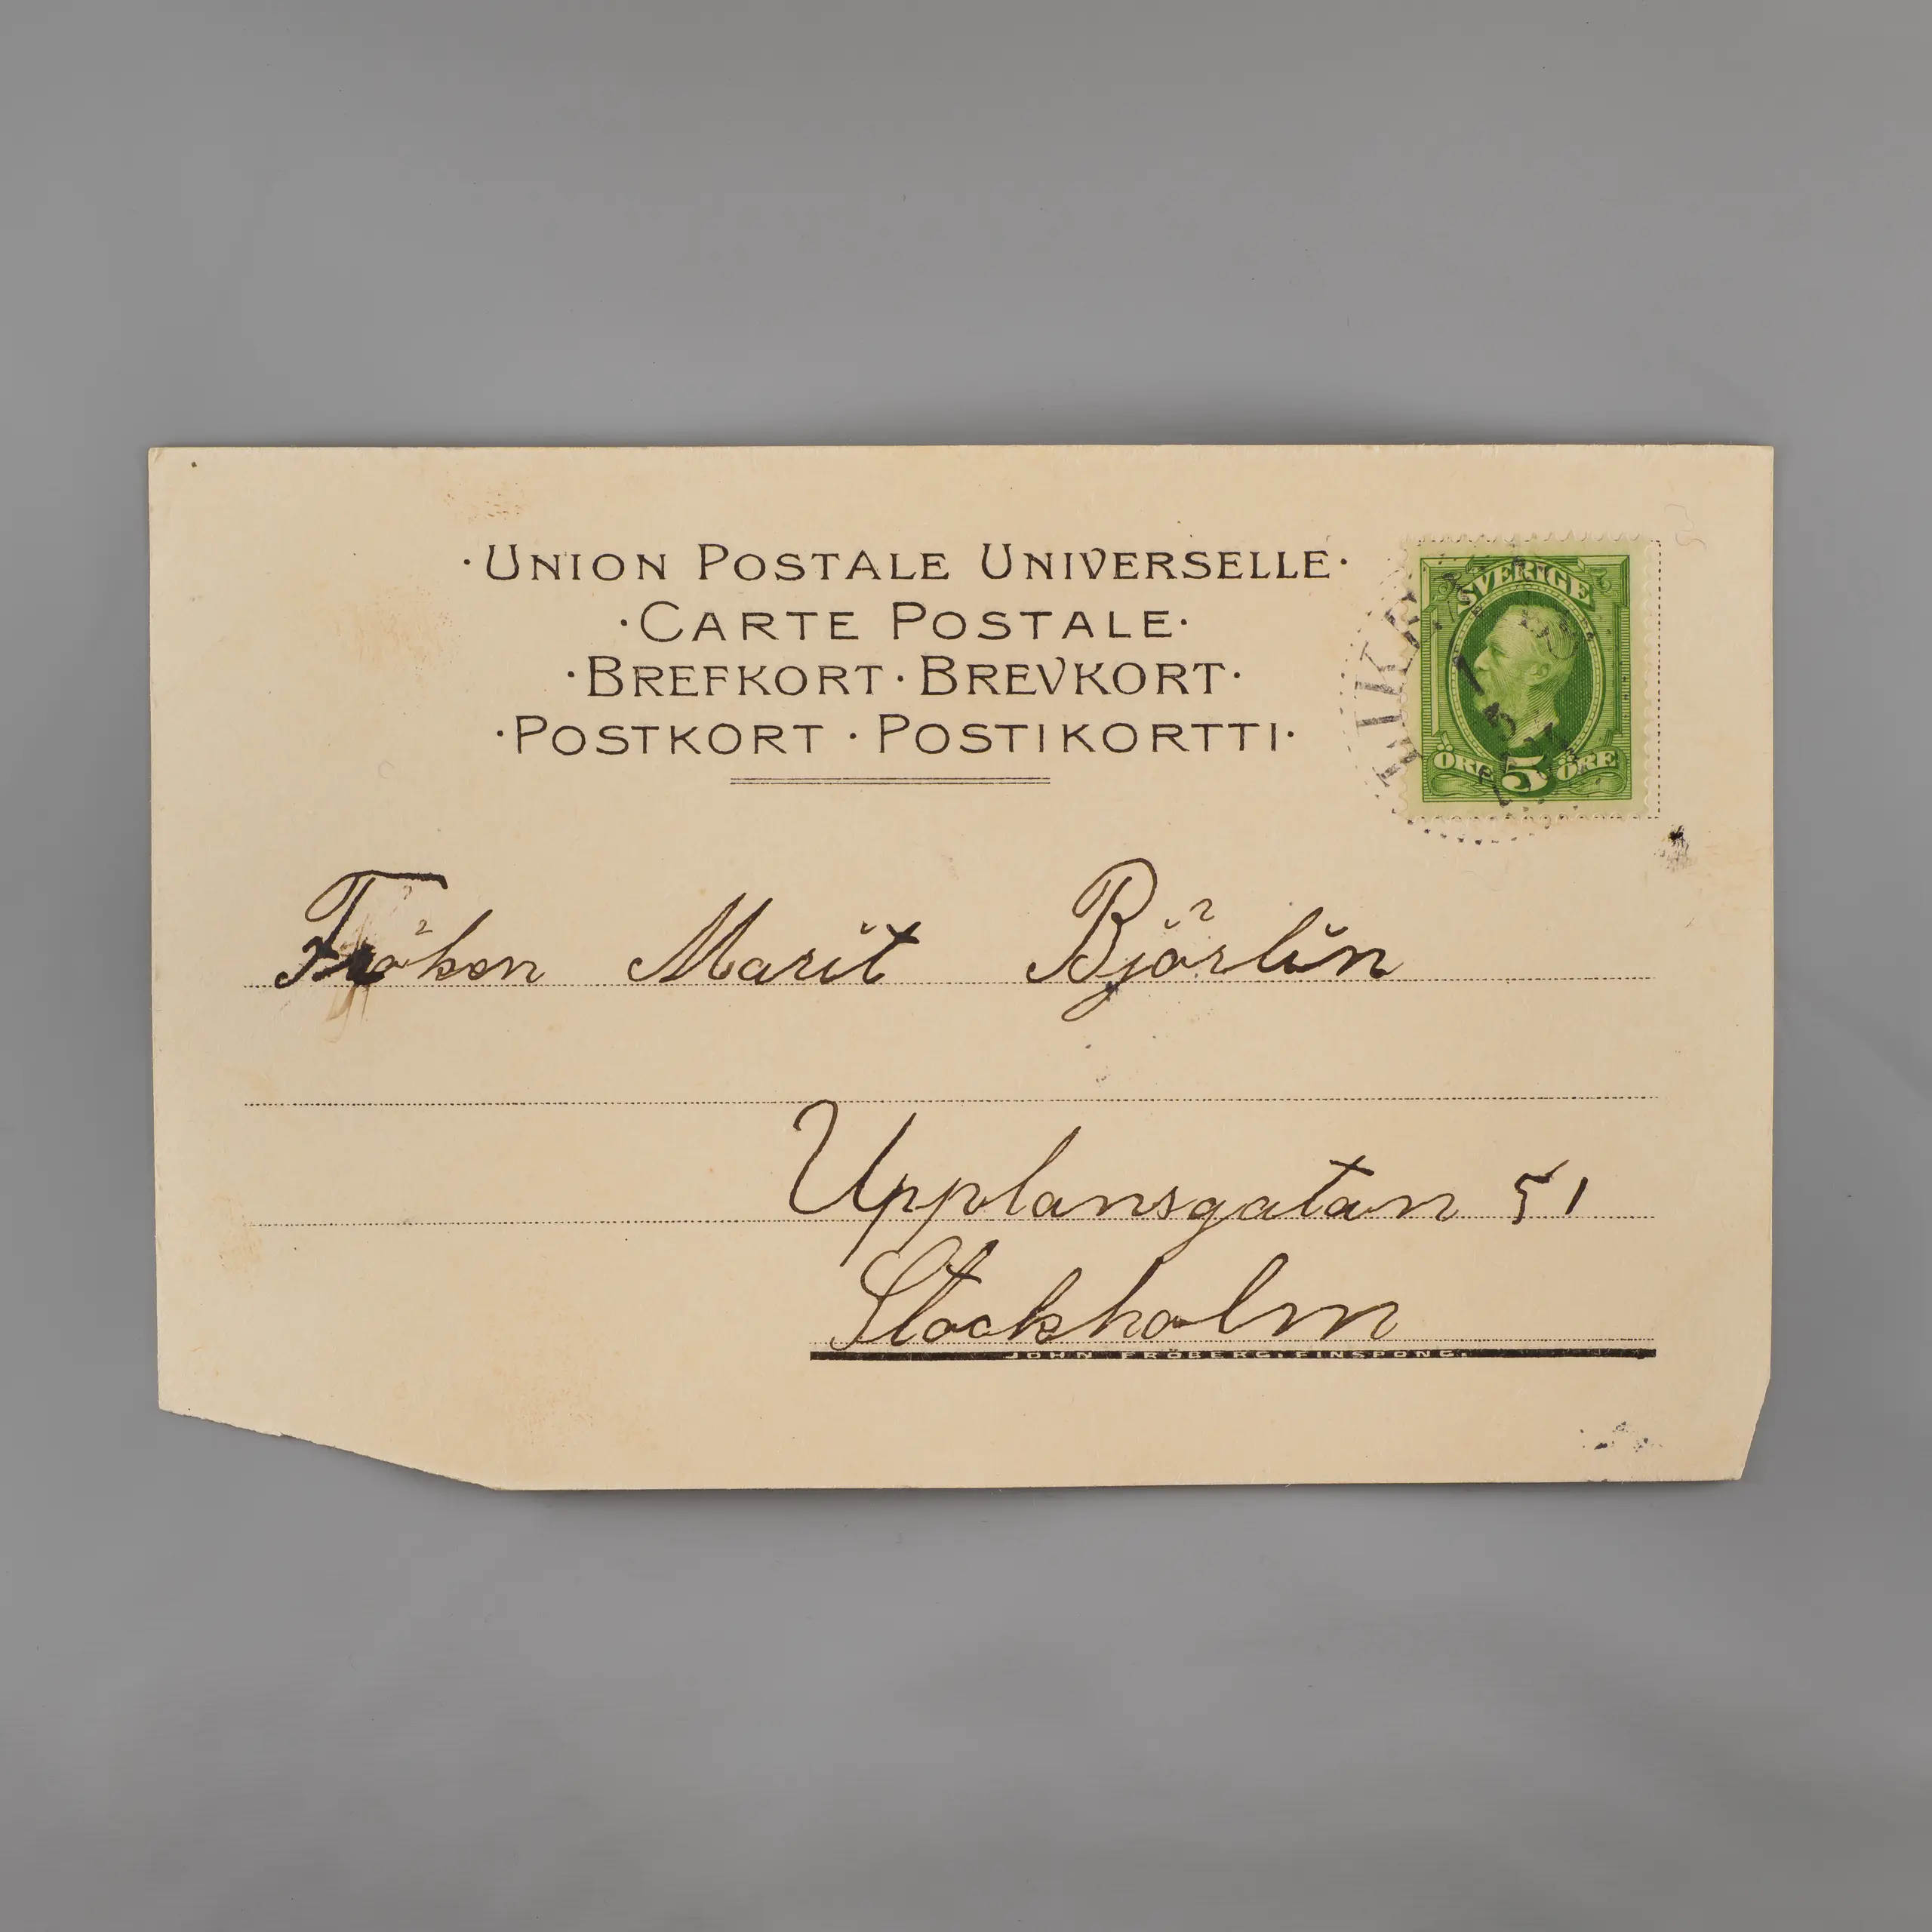 ·UNION POSTALE UNIVERSELLE·
·CARTE POSTALE·
·BREFKORT·BREVKORT·
·POSTKORT·POSTIKORTTI·
SVERIGE
ÖRE 5 ÖRE
Fröken Marit Björlin
Upplansgatan 51
Stockholm
JOHN FRÖBERG, FINSPONG.